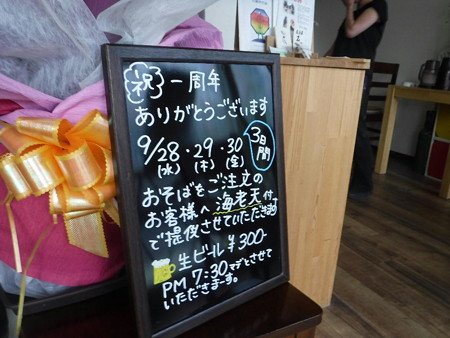 祝 一周年
ありがとうございます
9/28・29・30 3日間
(水) (木) (金)
おそばをご注文の
お客様へ海老天付
で提供させていただきます
生ビール ¥300-
PM 7:30マデとさせて
いただきまーす。